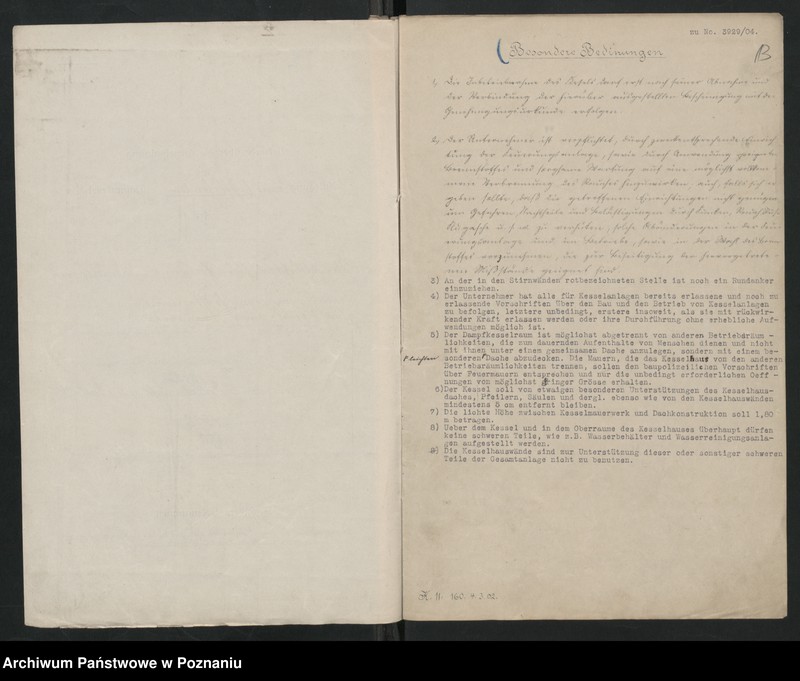 zu No. 3929/04.
Besondere Bedingungen
B
1, Die Inbetriebnahme des Kessels darf erst nach seiner Abnahme und
der Verbindung der hierüber ausgestellten Bescheinigung mit der
Genehmigungsurkunde erfolgen.
2, Der Unternehmer ist verpflichtet, durch zweckentsprechende Einrich
tung der Feuerungsanlage, sowie durch Anwendung geeigneten
Brennstoffes und sorgsame Wartung auf eine möglichst vollkom
mene Verbrennung des Rauches hinzuwirken, auch, falls sich er
geben sollte, daß die getroffenen Einrichtungen nicht genügen
um Gefahren, Nachtheile und Belästigungen durch
zu verhüten, solche Abänderungen in der Feue
rungsanlage und im Betriebe, sowie in der Wahl des Bren
stoffes vorzunehmen, die zur Beseitigung der hervorgetrete
nen Mißstände geeignet sind.
3) An der in den Stirnwänden rotbezeichneten Stelle ist noch ein Rundanker
einzuziehen.
4) Der Unternehmer hat alle für Kesselanlagen bereits erlassene und noch zu
erlassende Vorschriften über den Bau und den Betrieb von Kesselanlagen
zu befolgen, letztere unbedingt, erstere insoweit, als sie mit rückwir-
kender Kraft erlassen werden oder ihre Durchführung ohne erhebliche Auf-
wendungen möglich ist.
5) Der Dampfkesselraum ist möglichst abgetrennt von anderen Betriebsräum -
lichkeiten, die zum dauernden Aufenthalte von Menschen dienen und nicht
mit ihnen unter einem gemeinsamen Dache anzulegen, sondern mit einem be-
leichten
sonderen Dache abzudecken. Die Mauern, die das Kesselhaus von den anderen
Betriebsräumlichkeiten trennen, sollen den baupolizeilichen Vorschriften
über Feuermauern entsprechen und nur die unbedingt erforderlichen Oeff -
nungen von möglichst geringer Grösse erhalten.
6) Der Kessel soll von etwaigen besonderen Unterstützungen des Kesselhaus-
daches, Pfeilern, Säulen und dergl. ebenso wie von den Kesselhauswänden
mindestens 8 cm entfernt bleiben.
7) Die lichte Höhe zwischen Kesselmauerwerk und Dachkonstruktion soll 1,80
m betragen.
8) Ueber dem Kessel und in dem Oberraume des Kesselhauses überhaupt dürfen
keine schweren Teile, wie z.B. Wasserbehälter und Wasserreinigungsanla-
gen aufgestellt werden.
9) Die Kesselhauswände sind zur Unterstützung dieser oder sonstiger schweren
Teile der Gesamtanlage nicht zu benutzen.
K. N. 160. 4.3.02.
Archiwum Państwowe w Poznaniu